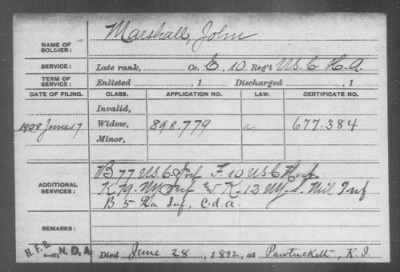 NAME OF SOLDIER: Marshall, John
SERVICE: Late rank, Co. E, 10 Reg't U.S.C. H.A.
TERM OF SERVICE: Enlisted , 1 Discharged , 1
DATE OF FILING. CLASS. APPLICATION NO. LAW. CERTIFICATE NO.
Invalid,
1908 June 17 Widow, 898.779 a 677.384
Minor,
ADDITIONAL SERVICES: B 77 U.S.C. Inf F. 10 U.S.C. H. A.
K 79. Inf K. 12 Mil Inf
B 5 La Inf, C.d.a.
REMARKS:
N.D.A.
Died June 28, 1892, at Pawtuckett, R.I.